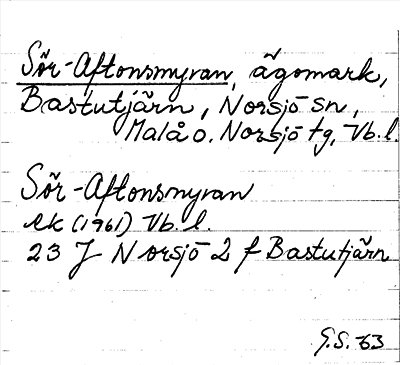 Sör-Aftonsmyran, ägomark,
Bastutjärn, Norsjö sn,
Malå o. Norsjö tg, Vb. l.
Sör-Aftonsmyran
ek (1961) Vb. l.
23 J Norsjö 2 f Bastutjärn
G.S. 63